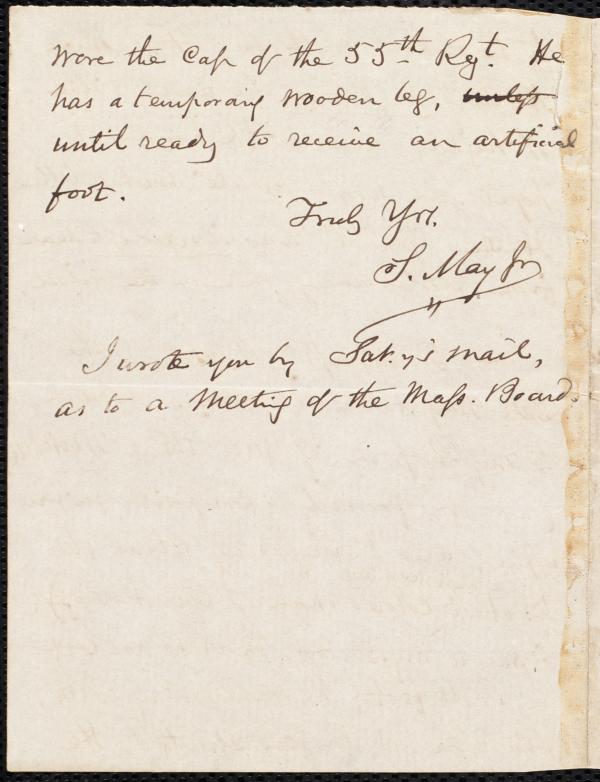 wore the Cap of the 55th Regt. He
has a temporary wooden leg, unless
until ready to receive an artificial
foot.
Truly Yrs.
S. May Jr
I wrote you by Sat.y's mail,
as to a Meeting of the Mass. Board.